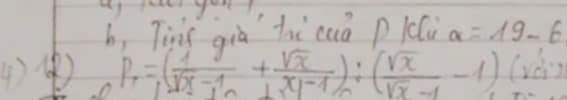 b, Tính giá trị của P khi a = 19 - 6
4) 12) P = (1/(√x - 1) + √x/(x - 1)) : (√x/(√x - 1) - 1) (với